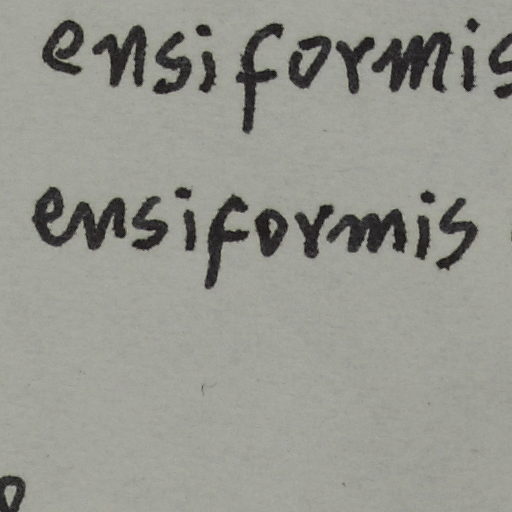 ensiformis
ensiformis